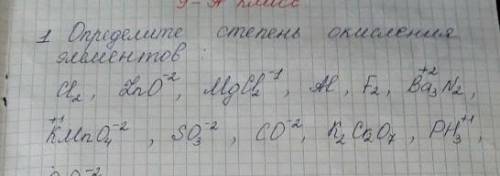 9-А класс
1 Определите степень окисления
элементов :
Cl₂, ZnO⁻², MgCl₂⁻¹, Al, F₂, Ba₃⁺²N₂,
K⁺¹MnO₄⁻², SO₃⁻², CO⁻², K₂Cr₂O₇, PH₃⁺¹,